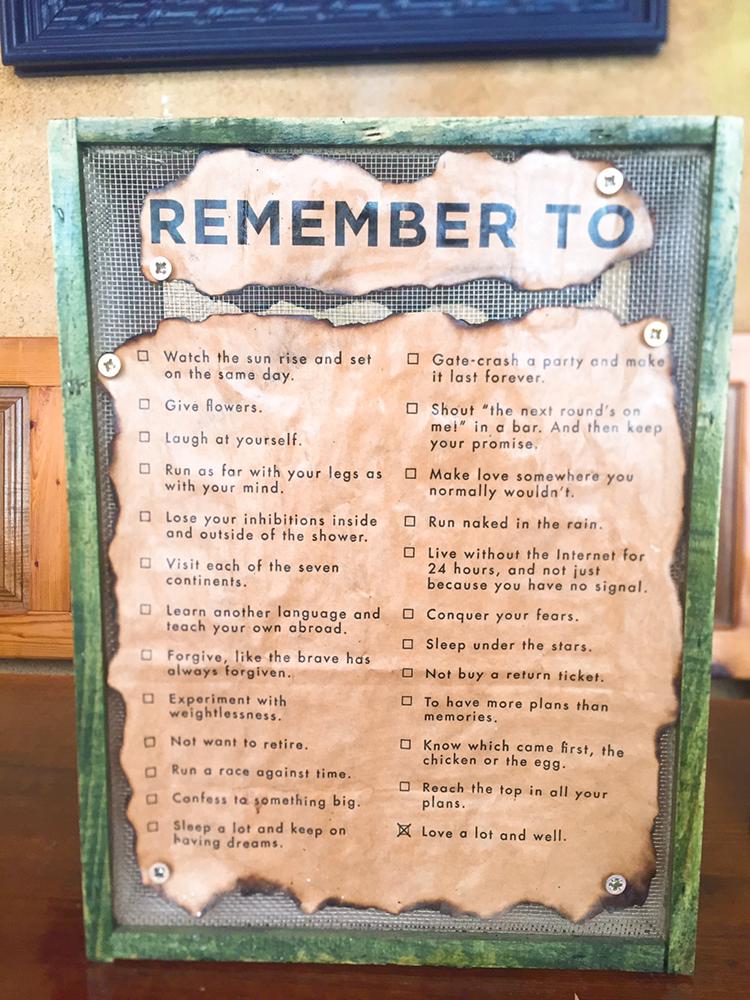 REMEMBER TO
☐ Watch the sun rise and set
on the same day.
☐ Give flowers.
☐ Laugh at yourself.
☐ Run as far with your legs as
with your mind.
☐ Lose your inhibitions inside
and outside of the shower.
☐ Visit each of the seven
continents.
☐ Learn another language and
teach your own abroad.
☐ Forgive, like the brave has
always forgiven.
☐ Experiment with
weightlessness.
☐ Not want to retire.
☐ Run a race against time.
☐ Confess to something big.
☐ Sleep a lot and keep on
having dreams.
☐ Gate-crash a party and make
it last forever.
☐ Shout "the next round's on
me!" in a bar. And then keep
your promise.
☐ Make love somewhere you
normally wouldn't.
☐ Run naked in the rain.
☐ Live without the Internet for
24 hours, and not just
because you have no signal.
☐ Conquer your fears.
☐ Sleep under the stars.
☐ Not buy a return ticket.
☐ To have more plans than
memories.
☐ Know which came first, the
chicken or the egg.
☐ Reach the top in all your
plans.
☒ Love a lot and well.